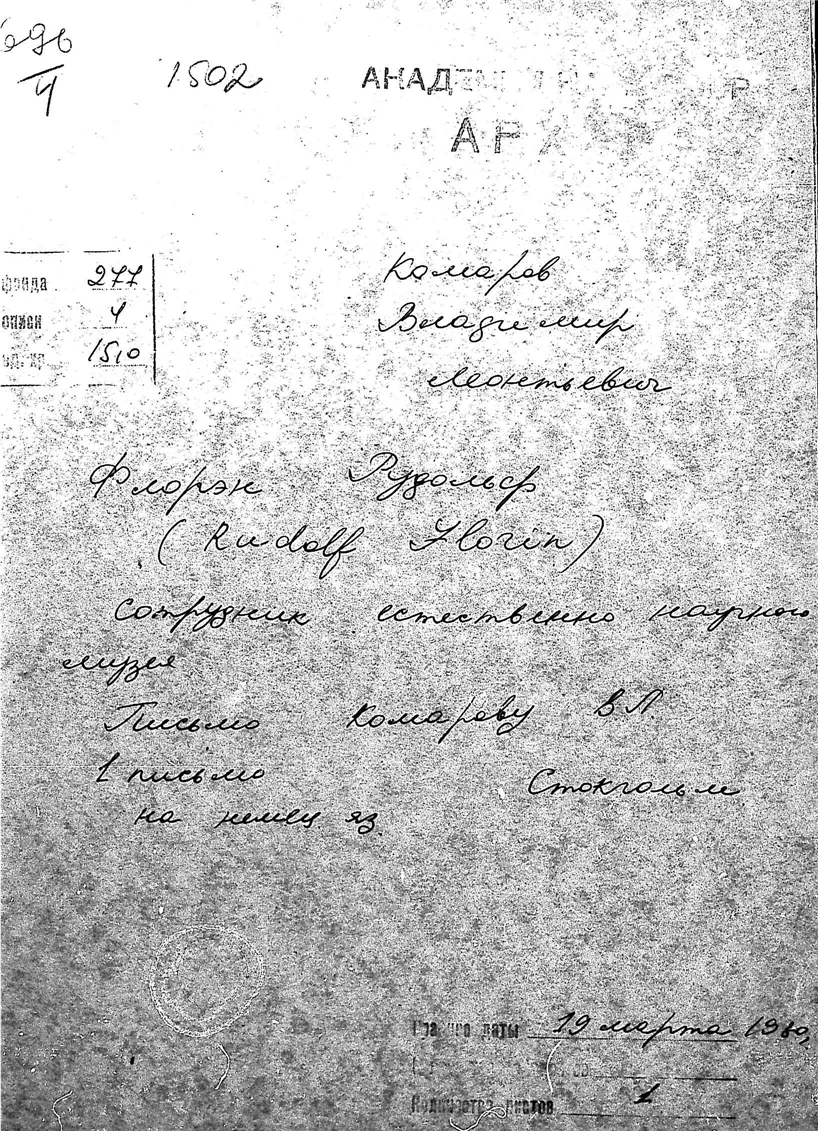 696
4
1502
АКАДЕМИЯ НАУК СССР
АРХИВ
фонда 277
описи 4
ед. хр. 1510
Комаров
Владимир
Леонтьевич
Флорэн Рудольф
(Rudolf Florin)
сотрудник естественно научного
музея
Письмо Комарову В Л.
1 письмо Стокгольм
на немец. яз.
даты 19 марта
Количество листов 1